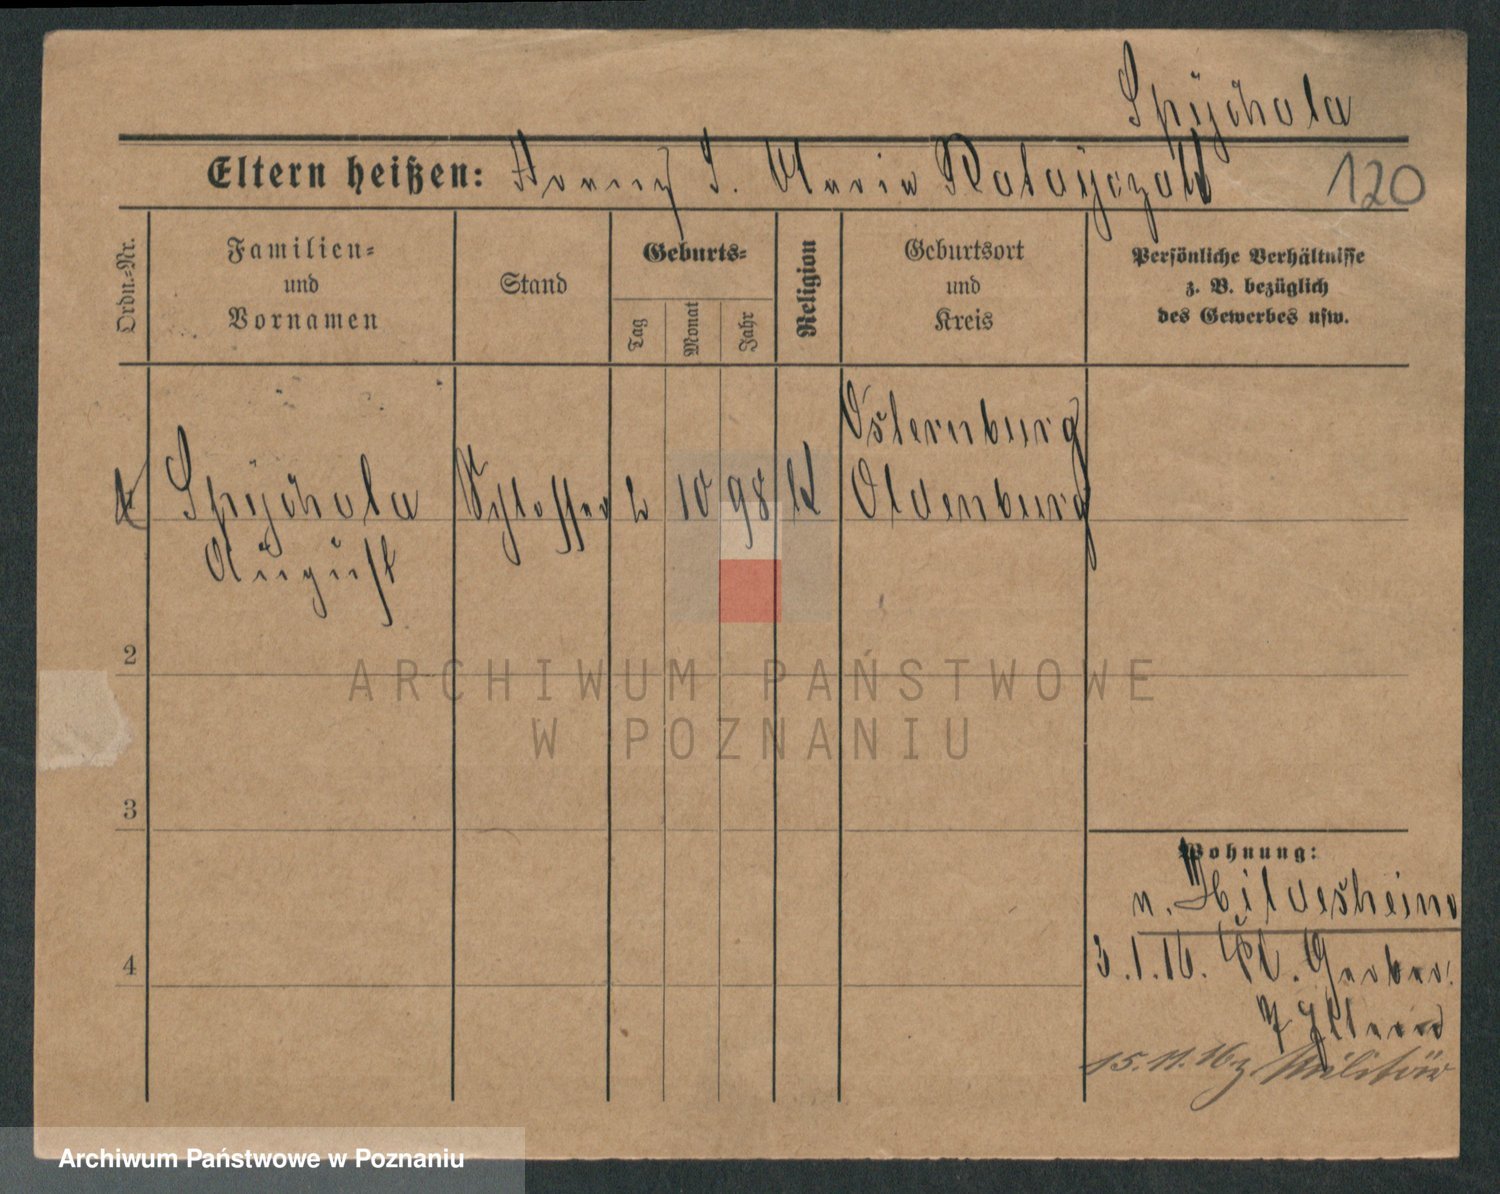 Spÿchola
Eltern heißen: Franz u. Maria Ratayczak
120
Ordn.-Nr.
Familien- und Vornamen
Stand
Geburts-
Tag
Monat
Jahr
Religion
Geburtsort und Kreis
Persönliche Verhältnisse
z. B. bezüglich
des Gewerbes usw.
Osternburg
Spÿchola Schlosser 2 10 98 K Oldenburg
August
2
3
4
Wohnung:
n. Hildesheim
3.1.16. Gerber
15.11.16 z. Militär
ARCHIWUM PAŃSTWOWE
W POZNANIU
Archiwum Państwowe w Poznaniu